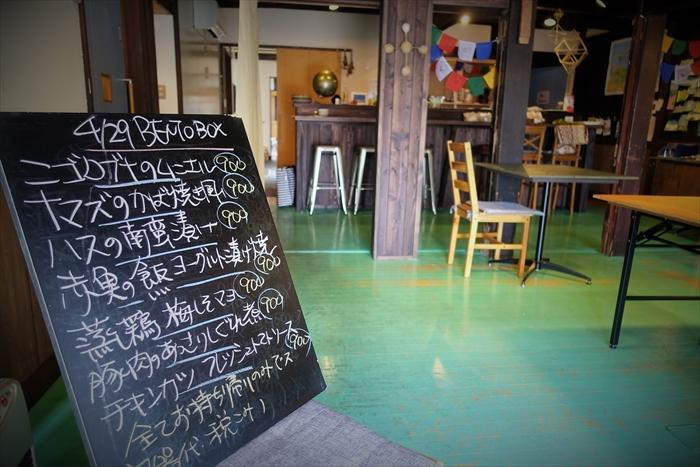 4/29 BENTO BOX
ニゴロブナのムニエル 900
ナマズのかば焼き風 900
ハスの南蛮漬け 900
赤魚の飯ヨーグルト漬け焼 900
蒸し鶏 梅しそマヨ 900
豚肉のあっさりしぐれ煮 900
チキンカツ フレッシュトマトソース 900
全てお持ち帰りのみでス
代・税コミ